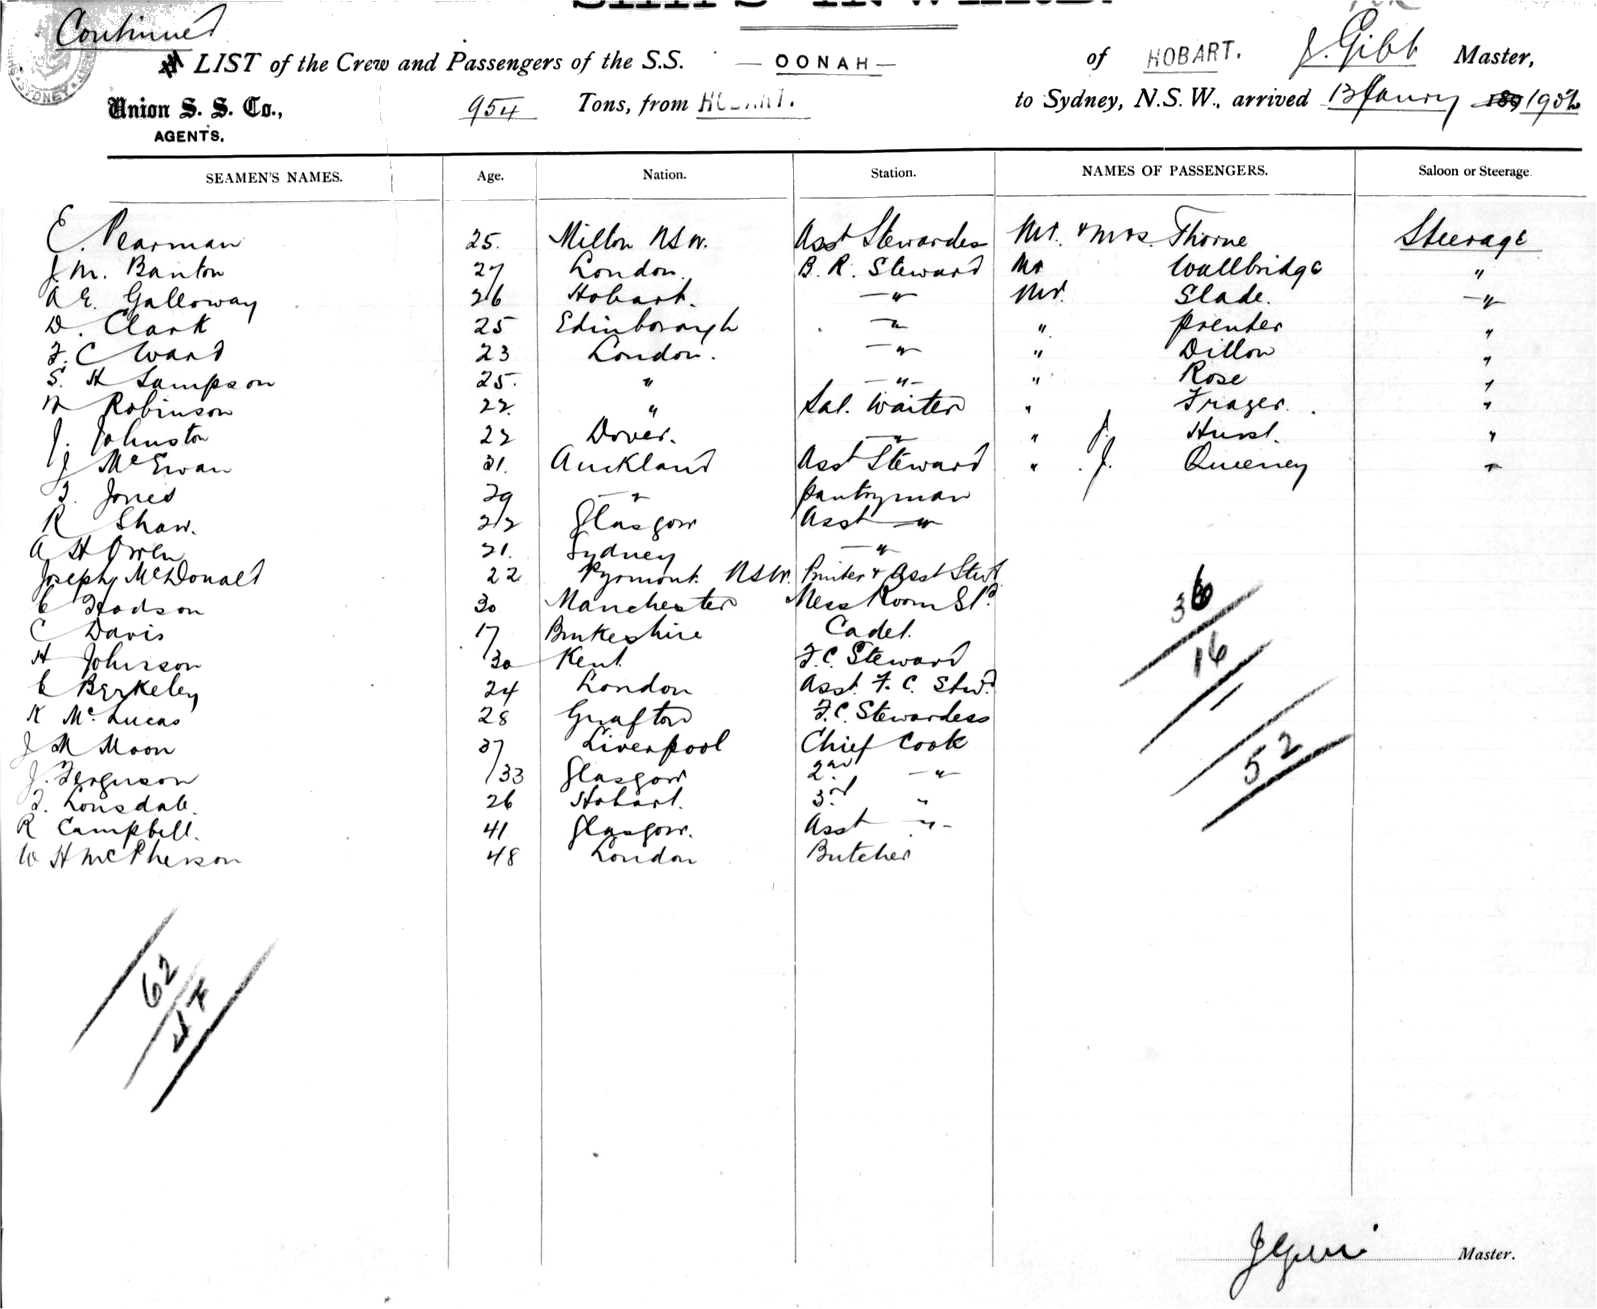 Continued
SHIPS INWARD.
LIST of the Crew and Passengers of the S.S. — OONAH — of HOBART. J. Gibb Master,
Union S. S. Co., 954 Tons, from HOBART. to Sydney, N.S.W., arrived 13 January 1902
AGENTS.
SEAMEN'S NAMES. Age. Nation. Station. NAMES OF PASSENGERS. Saloon or Steerage
E. Pearman 25. Milton NSW. Asst Stewardess Mr. & Mrs Thorne Steerage
J M. Banton 27 London. B. R. Steward Mr Wallbridge "
A E. Galloway 26 Hobart. —"— Mr. Slade. —"—
D. Clark 25 Edinborough —"— " Prenter "
F. C Ward 23 London. —"— " Dillon "
S. H Sampson 25. " —"— " Rose "
Robinson 22. " Sal. Waiter " Frazer. "
J. Johnston 22 Dover. —"— " J. Hurst. "
J McEwan 31. Auckland Asst Steward " J. Queeney "
Jones 29 —"— Pantryman
R Shaw. 22 Glasgow Asst —"—
A H Owen 21. Sydney —"—
Joseph McDonald 22 Pyrmont NSW. Printer & Asst Stwd
30 Manchester Mess Room Sd.
C Davis 17 Cadet.
H Johnson 30 Kent F. C. Steward
C Berkeley 24 London Asst. F. C. Stwd.
K McLucas 28 Grafton F. C. Stewardess
J M Moon 37 Liverpool Chief Cook
J. Ferguson 33 Glasgow 2nd —"—
Lonsdale. 26 Hobart. 3rd "
R Campbell. 41 Glasgow. Asst —"—
W H McPherson 48 London Butcher
36
16
1
52
62
Master.